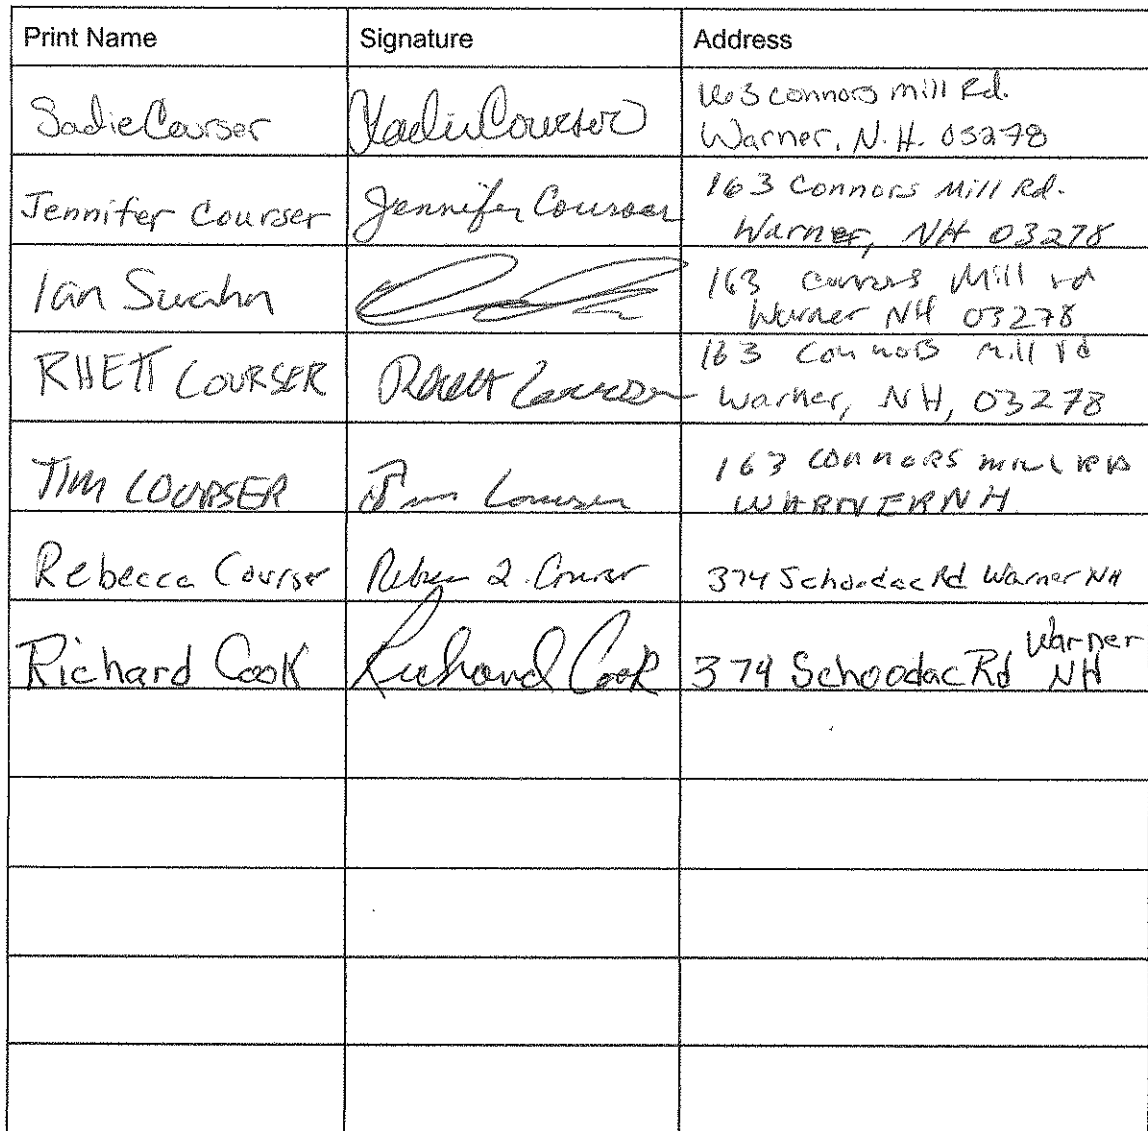 Print Name Signature Address
Sadie Courser Sadie Courser 163 connors mill Rd.
Warner, N.H. 03278
Jennifer Courser Jennifer Courser 163 Connors Mill Rd.
Warner, NH 03278
Ian Swahn 163 connors Mill rd
Warner NH 03278
RHETT COURSER Rhett Courser 163 Connors Mill rd
Warner, NH, 03278
TIM COURSER Tim Courser 163 CONNORS MILL RD
WARNER NH
Rebecca Courser Rebecca Courser 374 Schoodac Rd Warner NH
Richard Cook Richard Cook 374 Schoodac Rd Warner
NH